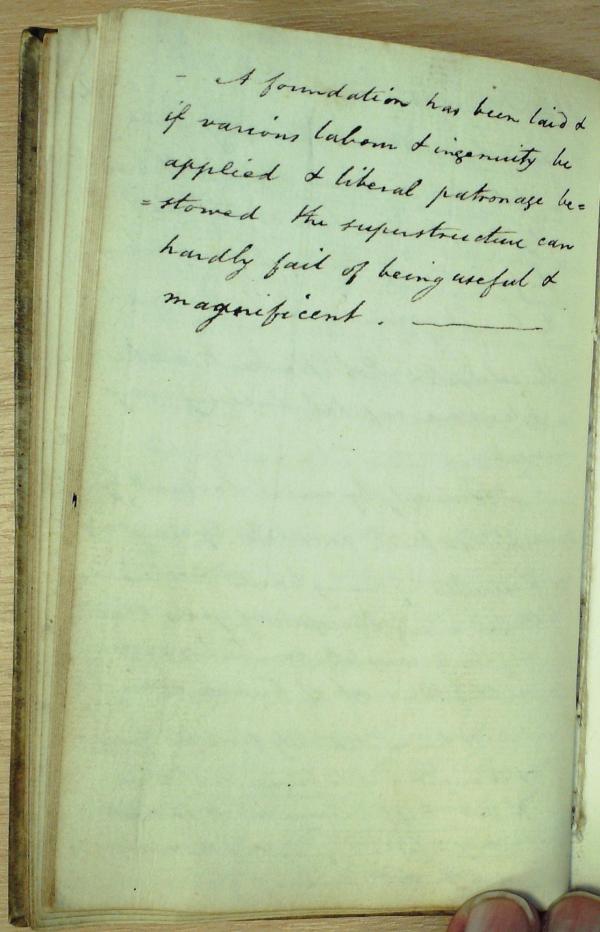 - A foundation has been laid &
if various labour & ingenuity be
applied & liberal patronage be=
=stowed the superstructure can
hardly fail of being useful &
magnificent . ———